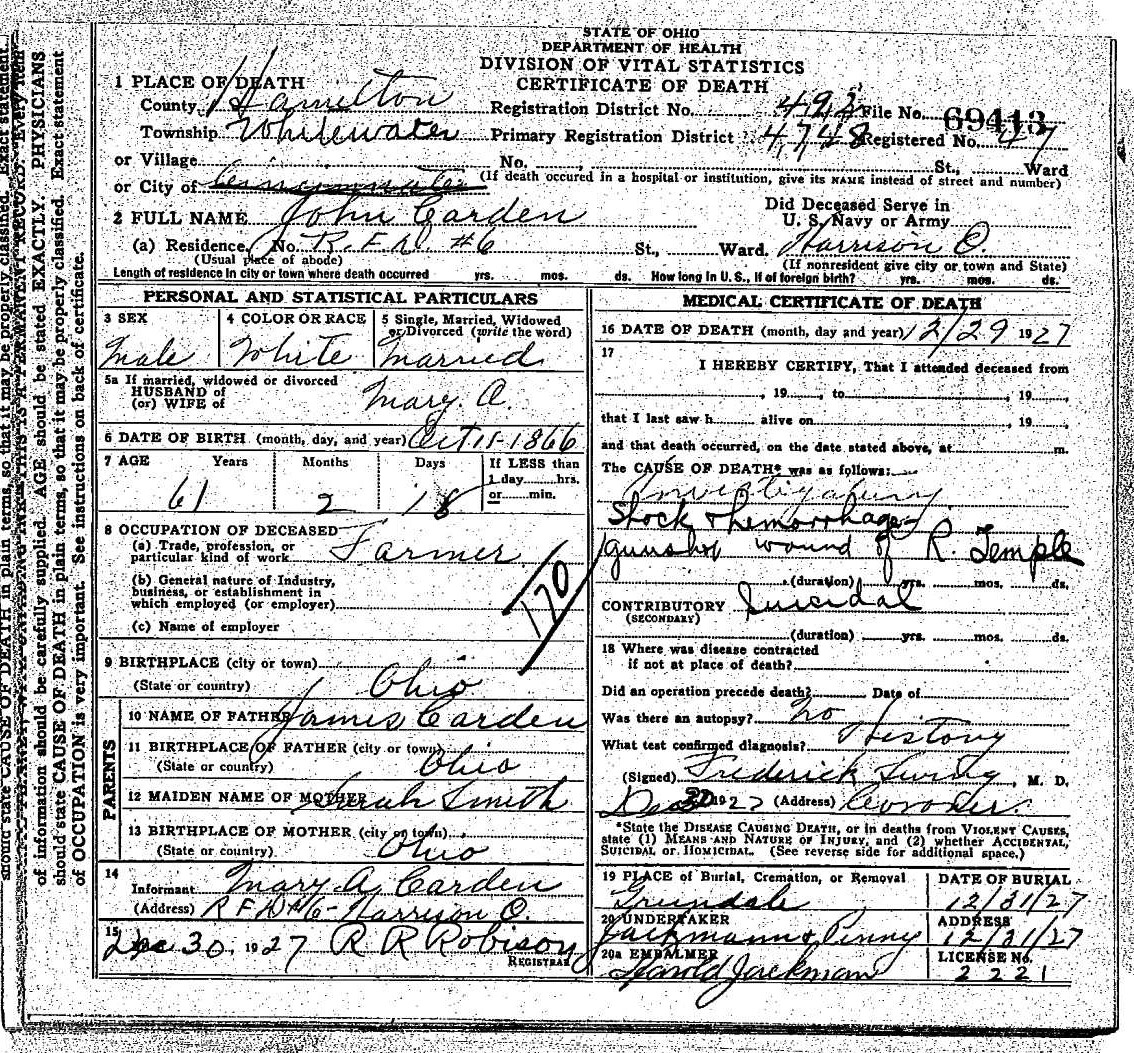 STATE OF OHIO
DEPARTMENT OF HEALTH
DIVISION OF VITAL STATISTICS
CERTIFICATE OF DEATH
1 PLACE OF DEATH
County Hamilton Registration District No. 493 File No. 69413
Township Whitewater Primary Registration District 4748 Registered No. 47
or Village No. St., Ward
or City of Cincinnati (If death occured in a hospital or institution, give its NAME instead of street and number)
2 FULL NAME John Carden Did Deceased Serve in
U. S. Navy or Army
(a) Residence. No. R.F.D. #6 St., Ward. Harrison O.
(Usual place of abode) (If nonresident give city or town and State)
Length of residence in city or town where death occurred yrs. mos. ds. How long in U. S., if of foreign birth? yrs. mos. ds.
PERSONAL AND STATISTICAL PARTICULARS
3 SEX 4 COLOR OR RACE 5 Single, Married, Widowed
or Divorced (write the word)
Male White Married
5a If married, widowed or divorced
HUSBAND of
(or) WIFE of Mary. A.
6 DATE OF BIRTH (month, day, and year) Oct 11-1866
7 AGE Years Months Days If LESS than
1 day hrs.
or min.
61 2 18
8 OCCUPATION OF DECEASED
(a) Trade, profession, or
particular kind of work Farmer
(b) General nature of Industry,
business, or establishment in
which employed (or employer)
(c) Name of employer
170
9 BIRTHPLACE (city or town)
(State or country) Ohio
PARENTS
10 NAME OF FATHER James Carden
11 BIRTHPLACE OF FATHER (city or town)
(State or country) Ohio
12 MAIDEN NAME OF MOTHER Sarah Smith
13 BIRTHPLACE OF MOTHER (city or town)
(State or country) Ohio
14
Informant Mary A Carden
(Address) R F D #6- Harrison O.
15
Dec 30, 1927 R R Robison
REGISTRAR
MEDICAL CERTIFICATE OF DEATH
16 DATE OF DEATH (month, day and year) 12/29 1927
17
I HEREBY CERTIFY, That I attended deceased from
, 19 , to , 19 ,
that I last saw h alive on , 19 ,
and that death occurred, on the date stated above, at m.
The CAUSE OF DEATH* was as follows:
Shock & hemorrhage
gunshot wound of R. Temple
(duration) yrs. mos. ds.
CONTRIBUTORY Suicidal
(SECONDARY)
(duration) yrs. mos. ds.
18 Where was disease contracted
if not at place of death?
Did an operation precede death? Date of
Was there an autopsy? No
What test confirmed diagnosis? History
(Signed) Frederick , M. D.
Dec 30 1927 (Address) Coroner.
*State the DISEASE CAUSING DEATH, or in deaths from VIOLENT CAUSES,
state (1) MEANS AND NATURE OF INJURY, and (2) whether ACCIDENTAL,
SUICIDAL or HOMICIDAL. (See reverse side for additional space.)
19 PLACE of Burial, Cremation, or Removal DATE OF BURIAL
Greendale 12/31/27
20 UNDERTAKER ADDRESS
Jackman & Penny 12/31/27
20a EMBALMER LICENSE No.
Harold Jackman 2221
should state CAUSE OF DEATH in plain terms, so that it may be properly classified. Exact statement
of information should be carefully supplied. AGE should be stated EXACTLY. PHYSICIANS
should state CAUSE OF DEATH in plain terms, so that it may be properly classified. Exact statement
of OCCUPATION is very important. See instructions on back of certificate.